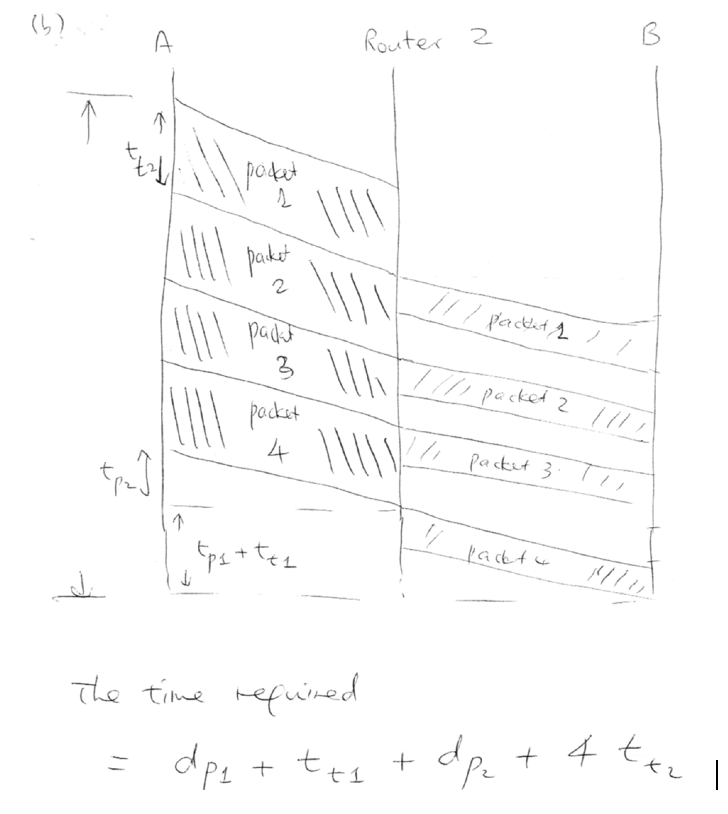 (b)
A Router 2 B
t_t2
packet 1
packet 2
packet 3
packet 4
packet 1
packet 2
packet 3
packet 4
t_p2
t_p1 + t_t1
The time required
= d_p1 + t_t1 + d_p2 + 4 t_t2